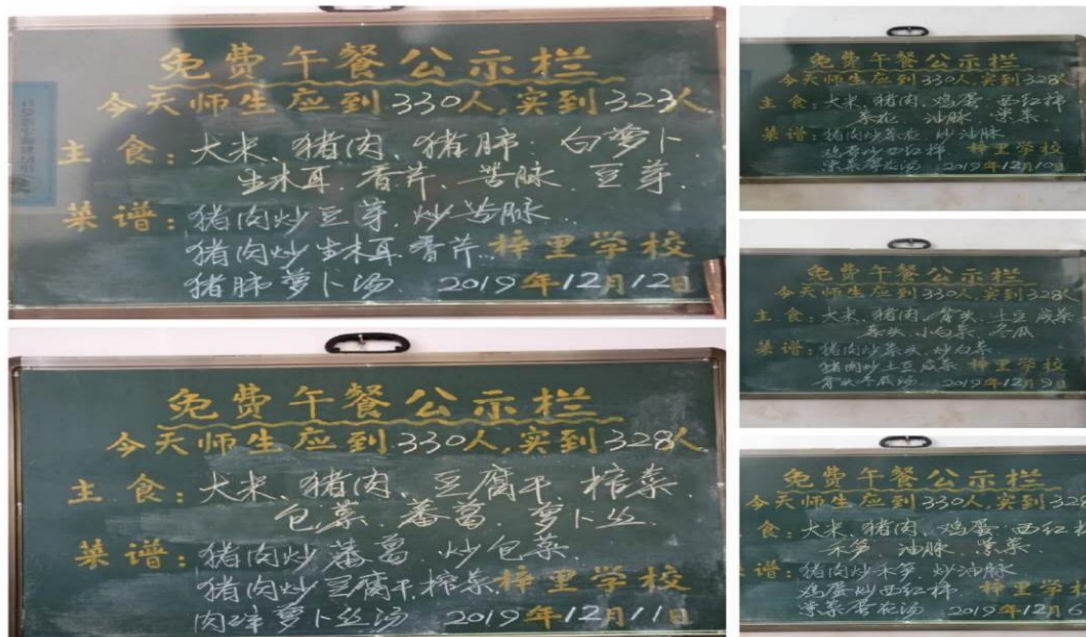 免费午餐公示栏
今天师生应到330人,实到323人
主食:大米、猪肉、猪肺、白萝卜
生木耳、香芹、苦脉、豆芽.
菜谱:猪肉炒豆芽、炒苦脉
猪肉炒生木耳香芹 梓里学校
猪肺萝卜汤 2019年12月12日
免费午餐公示栏
今天师生应到330人,实到328人
主食:大米、猪肉、豆腐干 榨菜
包菜、蕃葛、萝卜丝.
菜谱:猪肉炒蕃葛 炒包菜
猪肉炒豆腐干榨菜 梓里学校
肉碎萝卜丝汤 2019年12月11日
免费午餐公示栏
今天师生应到330人,实到328人
主食:大米、猪肉、鸡蛋 西红柿
菜花、油脉、紫菜
菜谱:猪肉炒菜花 炒油脉
鸡蛋炒西红柿 梓里学校
紫菜蛋花汤 2019年12月10日
免费午餐公示栏
今天师生应到330人,实到328人
主食:大米、猪肉、骨头、土豆 咸菜
菜头、小白菜、冬瓜
菜谱:猪肉炒菜头、炒白菜
猪肉炒土豆咸菜 梓里学校
骨头冬瓜汤 2019年12月9日
免费午餐公示栏
今天师生应到330人,实到328
食:大米、猪肉、鸡蛋、西红柿
禾笋 油脉 紫菜
谱:猪肉炒禾笋、炒油脉
鸡蛋炒西红柿 梓里学校
紫菜蛋花汤 2019年12月6